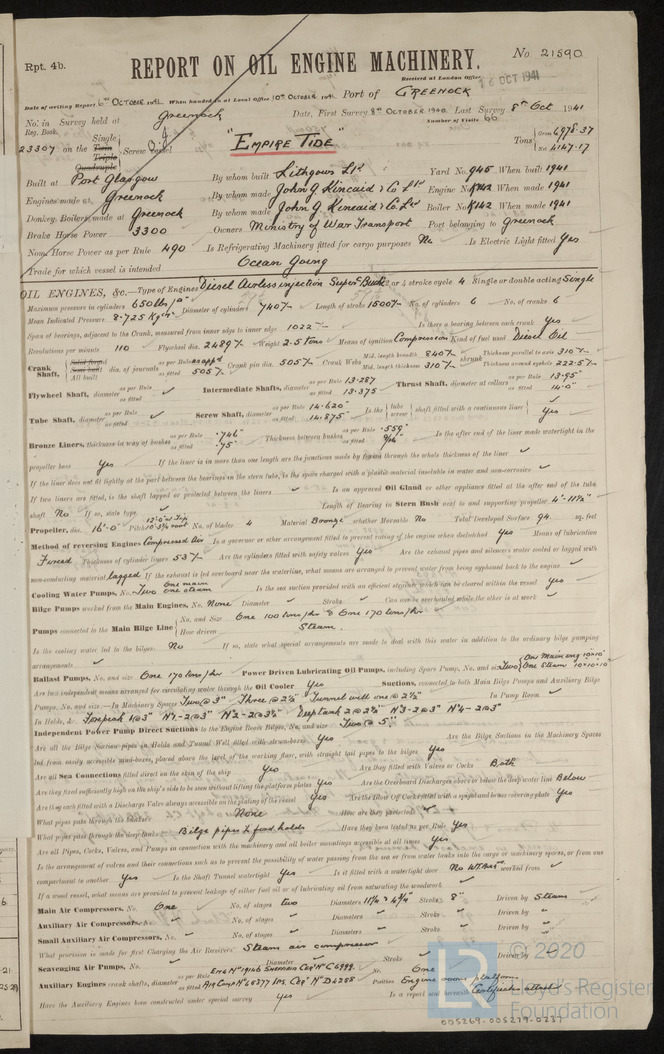 Rpt. 4b.
REPORT ON OIL ENGINE MACHINERY.
No. 21590
Received at London Office 16 OCT 1941
Date of writing Report 6th OCTOBER 1941 When handed in at Local Office 10th OCTOBER 1941 Port of GREENOCK
No. in Survey held at Greenock Date, First Survey 8th OCTOBER 1940 Last Survey 8th Oct 1941
Reg. Book. Number of Visits 66
23307 on the Single Twin Triple Quadruple Screw vessel "EMPIRE TIDE" Tons Gross 6978.37 Net 4147.17
Built at Port Glasgow By whom built Lithgows Ltd Yard No. 945 When built 1941
Engines made at Greenock By whom made John G Kincaid & Co. Ltd Engine No. K142 When made 1941
Donkey Boilers made at Greenock By whom made John G Kincaid & Co. Ltd Boiler No. K142 When made 1941
Brake Horse Power 3300 Owners Ministry of War Transport Port belonging to Greenock
Nom. Horse Power as per Rule 490 Is Refrigerating Machinery fitted for cargo purposes No Is Electric Light fitted Yes
Trade for which vessel is intended Ocean Going
OIL ENGINES, &c. Type of Engines Diesel Airless injection 2 or 4 stroke cycle 4 Single or double acting Single
Maximum pressure in cylinders 650 lbs Diameter of cylinders 740 Length of stroke 1500 No. of cylinders 6 No. of cranks 6
Mean Indicated Pressure 8.725
Span of bearings, adjacent to the Crank, measured from inner edge to inner edge 1022 Is there a bearing between each crank Yes
Revolutions per minute 110 Flywheel dia. 2489 Weight 2.5 tons Means of ignition Compression Kind of fuel used Diesel Oil
Crank Shaft, Solid forged Semi built All built dia. of journals as per Rule as appd as fitted 505 Crank pin dia. 505 Crank Webs Mid. length breadth 840 Mid. length thickness 310 shrunk Thickness parallel to axis 310 Thickness around eyehole 222.5
Flywheel Shaft, diameter as per Rule as fitted Intermediate Shafts, diameter as per Rule 13.287 as fitted 13.375 Thrust Shaft, diameter at collars as per Rule 13.95 as fitted 14.0
Tube Shaft, diameter as per Rule as fitted Screw Shaft, diameter as per Rule 14.620 as fitted 14.875 Is the tube screw shaft fitted with a continuous liner Yes
Bronze Liners, thickness in way of bushes as per Rule .746 as fitted .75 Thickness between bushes as per Rule .559 as fitted 9/16 Is the after end of the liner made watertight in the
propeller boss Yes If the liner is in more than one length are the junctions made by fusion through the whole thickness of the liner
If the liner does not fit tightly at the part between the bearings in the stern tube, is the space charged with a plastic material insoluble in water and non-corrosive
If two liners are fitted, is the shaft lapped or protected between the liners Is an approved Oil Gland or other appliance fitted at the after end of the tube
shaft No If so, state type Length of Bearing in Stern Bush next to and supporting propeller 4'-11½"
Propeller, dia. 16'-0 Pitch No. of blades 4 Material Bronze whether Moveable No Total Developed Surface 94 sq. feet
Method of reversing Engines Compressed Air Is a governor or other arrangement fitted to prevent racing of the engine when declutched Yes Means of lubrication
Forced Thickness of cylinder liners 53 Are the cylinders fitted with safety valves Yes Are the exhaust pipes and silencers water cooled or lagged with
non-conducting material lagged If the exhaust is led overboard near the waterline, what means are arranged to prevent water from being syphoned back to the engine
Cooling Water Pumps, No. Two One main One steam Is the sea suction provided with an efficient strainer which can be cleared within the vessel Yes
Bilge Pumps worked from the Main Engines, No. None Diameter Stroke Can one be overhauled while the other is at work
Pumps connected to the Main Bilge Line No. and Size One 100 tons/hr & One 170 tons/hr How driven Steam
Is the cooling water led to the bilges No If so, state what special arrangements are made to deal with this water in addition to the ordinary bilge pumping
arrangements
Ballast Pumps, No. and size One 170 tons/hr Power Driven Lubricating Oil Pumps, including Spare Pump, No. and size Two One Main eng 10"x10" One Steam 10x10x10"
Are two independent means arranged for circulating water through the Oil Cooler Yes Suctions, connected to both Main Bilge Pumps and Auxiliary Bilge
Pumps, No. and size:—In Machinery Spaces Two @ 3" Three @ 2½" Tunnel well one @ 2½" In Pump Room
In Holds, &c. Forepeak 1@3" No1-2@3" No2-2@3½" Deep tank 2@2½" No3-2@3" No4-2@3"
Independent Power Pump Direct Suctions to the Engine Room Bilges, No. and size Two @ 5"
Are all the Bilge Suction pipes in Holds and Tunnel Well fitted with strum-boxes Yes Are the Bilge Suctions in the Machinery Spaces
led from easily accessible mud-boxes, placed above the level of the working floor, with straight tail pipes to the bilges Yes
Are all Sea Connections fitted direct on the skin of the ship Yes Are they fitted with Valves or Cocks Both
Are they fixed sufficiently high on the ship's side to be seen without lifting the platform plates Yes Are the Overboard Discharges above or below the deep water line Below
Are they each fitted with a Discharge Valve always accessible on the plating of the vessel Yes Are the Blow Off Cocks fitted with a spigot and brass covering plate Yes
What pipes pass through the bunkers None How are they protected
What pipes pass through the deep tanks Bilge pipes to ford holds Have they been tested as per Rule Yes
Are all Pipes, Cocks, Valves, and Pumps in connection with the machinery and all boiler mountings accessible at all times Yes
Is the arrangement of valves and their connections such as to prevent the possibility of water passing from the sea or from water tanks into the cargo or machinery spaces, or from one
compartment to another Yes Is the Shaft Tunnel watertight Yes Is it fitted with a watertight door No worked from
If a wood vessel, what means are provided to prevent leakage of either fuel oil or of lubricating oil from saturating the woodwork
Main Air Compressors, No. One No. of stages two Diameters 11¾ & 4¾" Stroke 8" Driven by Steam
Auxiliary Air Compressors, No. No. of stages Diameters Stroke Driven by
Small Auxiliary Air Compressors, No. No. of stages Diameters Stroke Driven by
What provision is made for first Charging the Air Receivers Steam air compressor
Scavenging Air Pumps, No. Diameter Stroke Driven by
Auxiliary Engines crank shafts, diameter as per Rule as fitted No. One Position Engine room platform
Have the Auxiliary Engines been constructed under special survey Yes Is a report sent herewith Certificates attached
© 2020
Lloyd's Register
Foundation
005269-005279-0237